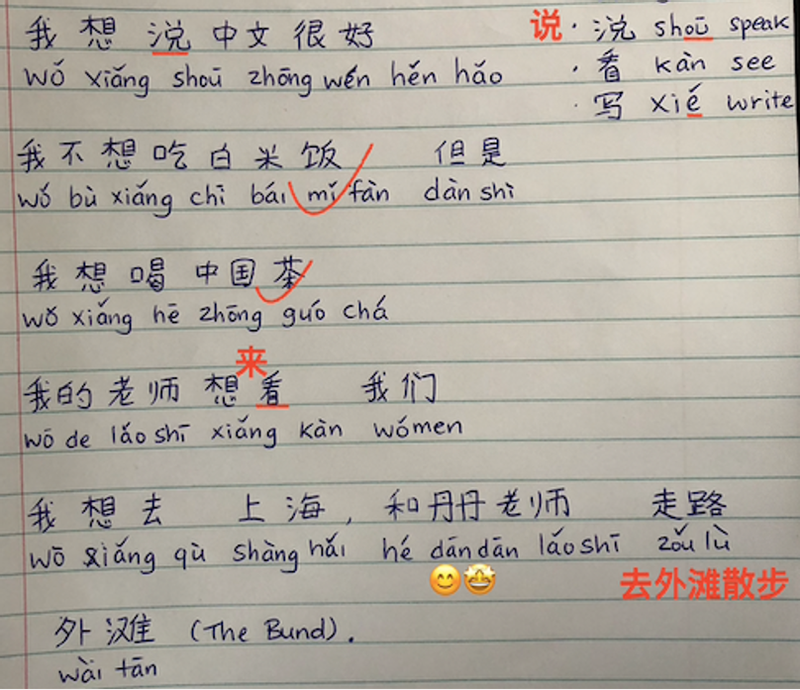 我想说中文很好 说·说 shoū speak
wǒ xiǎng shoū zhōng wén hěn hǎo · 看 kàn see
· 写 xié write
我不想吃白米饭 但是
wǒ bù xiǎng chī bái mǐ fàn dàn shì
我想喝中国茶
wǒ xiǎng hē zhōng guó chá
来
我的老师想看 我们
wō de lǎo shī xiǎng kàn wǒmen
我想去 上海,和丹丹老师 走路
wō xiǎng qù shàng hǎi hé dāndān lǎo shī zǒu lù
😊🤩 去外滩散步
外滩 (The Bund).
wài tān